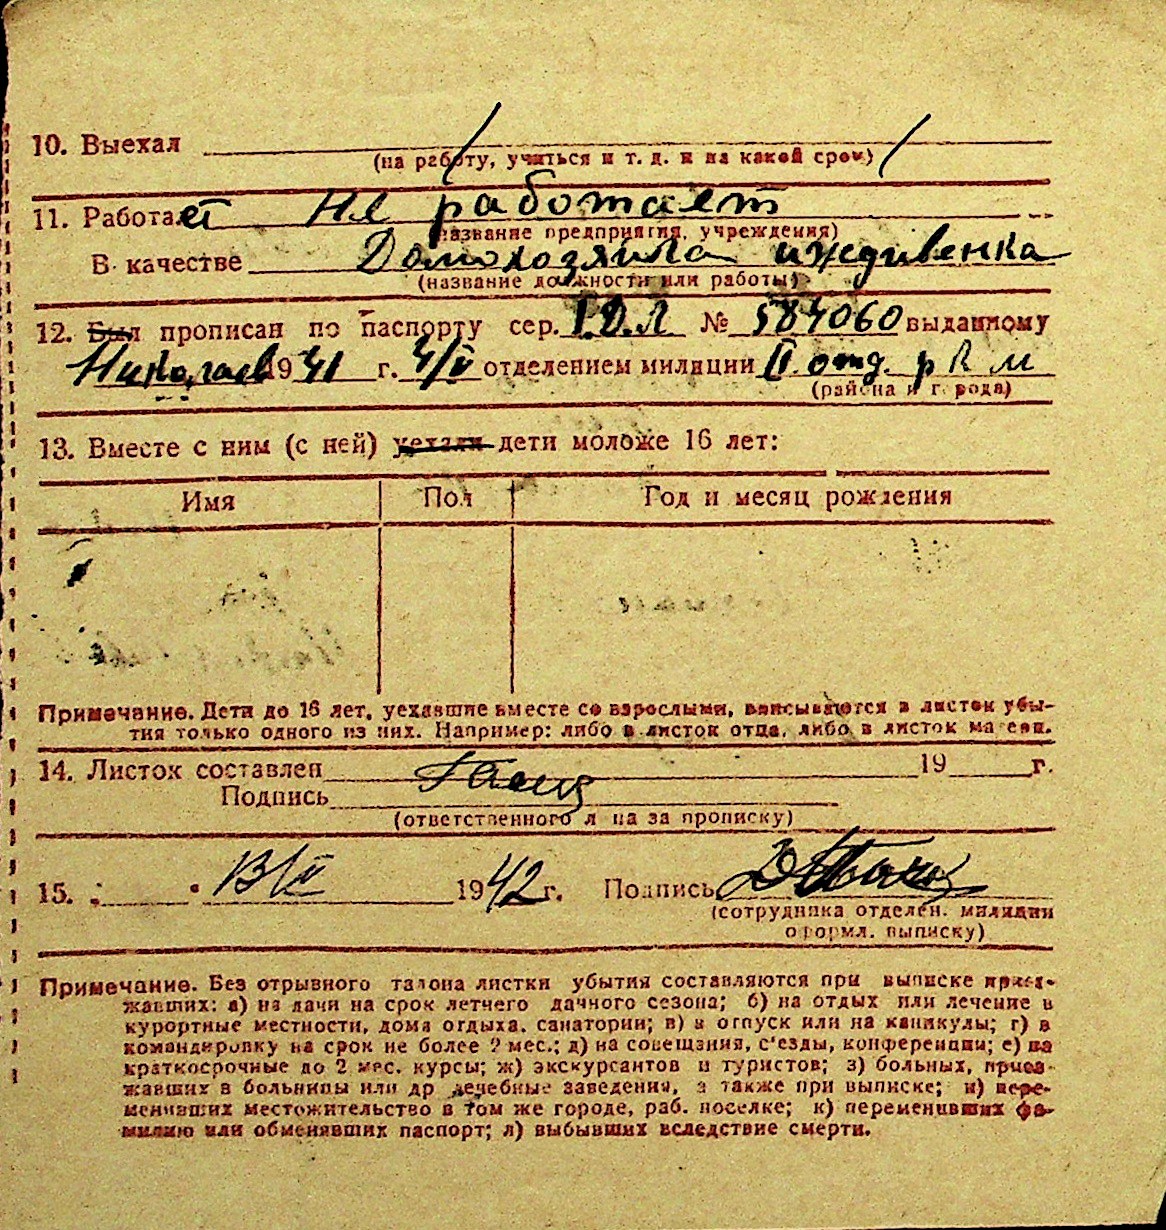 10. Выехал
(на работу, учиться и т. д. и на какой срок)
11. Работает Не работает
(название предприятия, учреждения)
В качестве Домохозяйка иждивенка
(название должности или работы)
12. Был прописан по паспорту сер. I.D.Л № 584060 выданному
Николаев 1941 г. 4/V отделением милиции II отд. р К м
(района и города)
13. Вместе с ним (с ней) уехали дети моложе 16 лет:
Имя Пол Год и месяц рождения
Примечание. Дети до 16 лет, уехавшие вместе со взрослыми, вписываются в листок убы-
тия только одного из них. Например: либо в листок отца, либо в листок матери.
14. Листок составлен 19 г.
Подпись
(ответственного лица за прописку)
15. 1942 г. Подпись
(сотрудника отделен. милиции
оформл. выписку)
Примечание. Без отрывного талона листки убытия составляются при выписке приез-
жавших: а) на дачи на срок летнего дачного сезона; б) на отдых или лечение в
курортные местности, дома отдыха, санатории; в) в отпуск или на каникулы; г) в
командировку на срок не более 2 мес.; д) на совещания, с'езды, конференции; е) на
краткосрочные до 2 мес. курсы; ж) экскурсантов и туристов; з) больных, приез-
жавших в больницы или др лечебные заведения, а также при выписке; и) пере-
менивших местожительство в том же городе, раб. поселке; к) переменивших фа-
милию или обменявших паспорт; л) выбывших вследствие смерти.